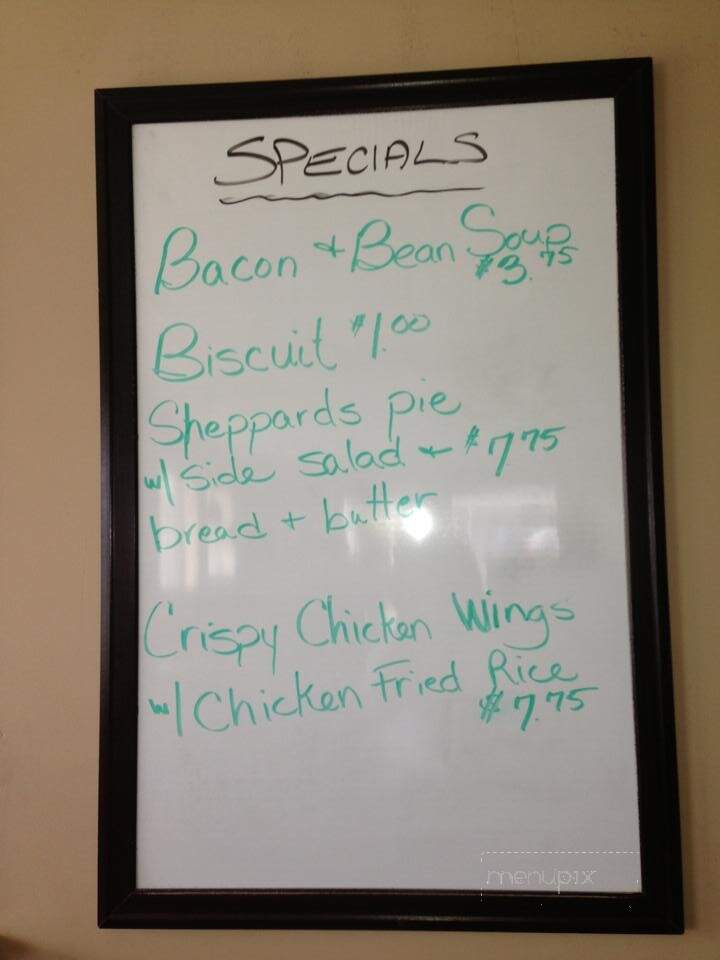 SPECIALS
Bacon + Bean Soup
$3.75
Biscuit $1.00
Sheppards pie
w/ side salad + $7.75
bread + butter
Crispy Chicken Wings
w/ Chicken Fried Rice
$7.75
menupix